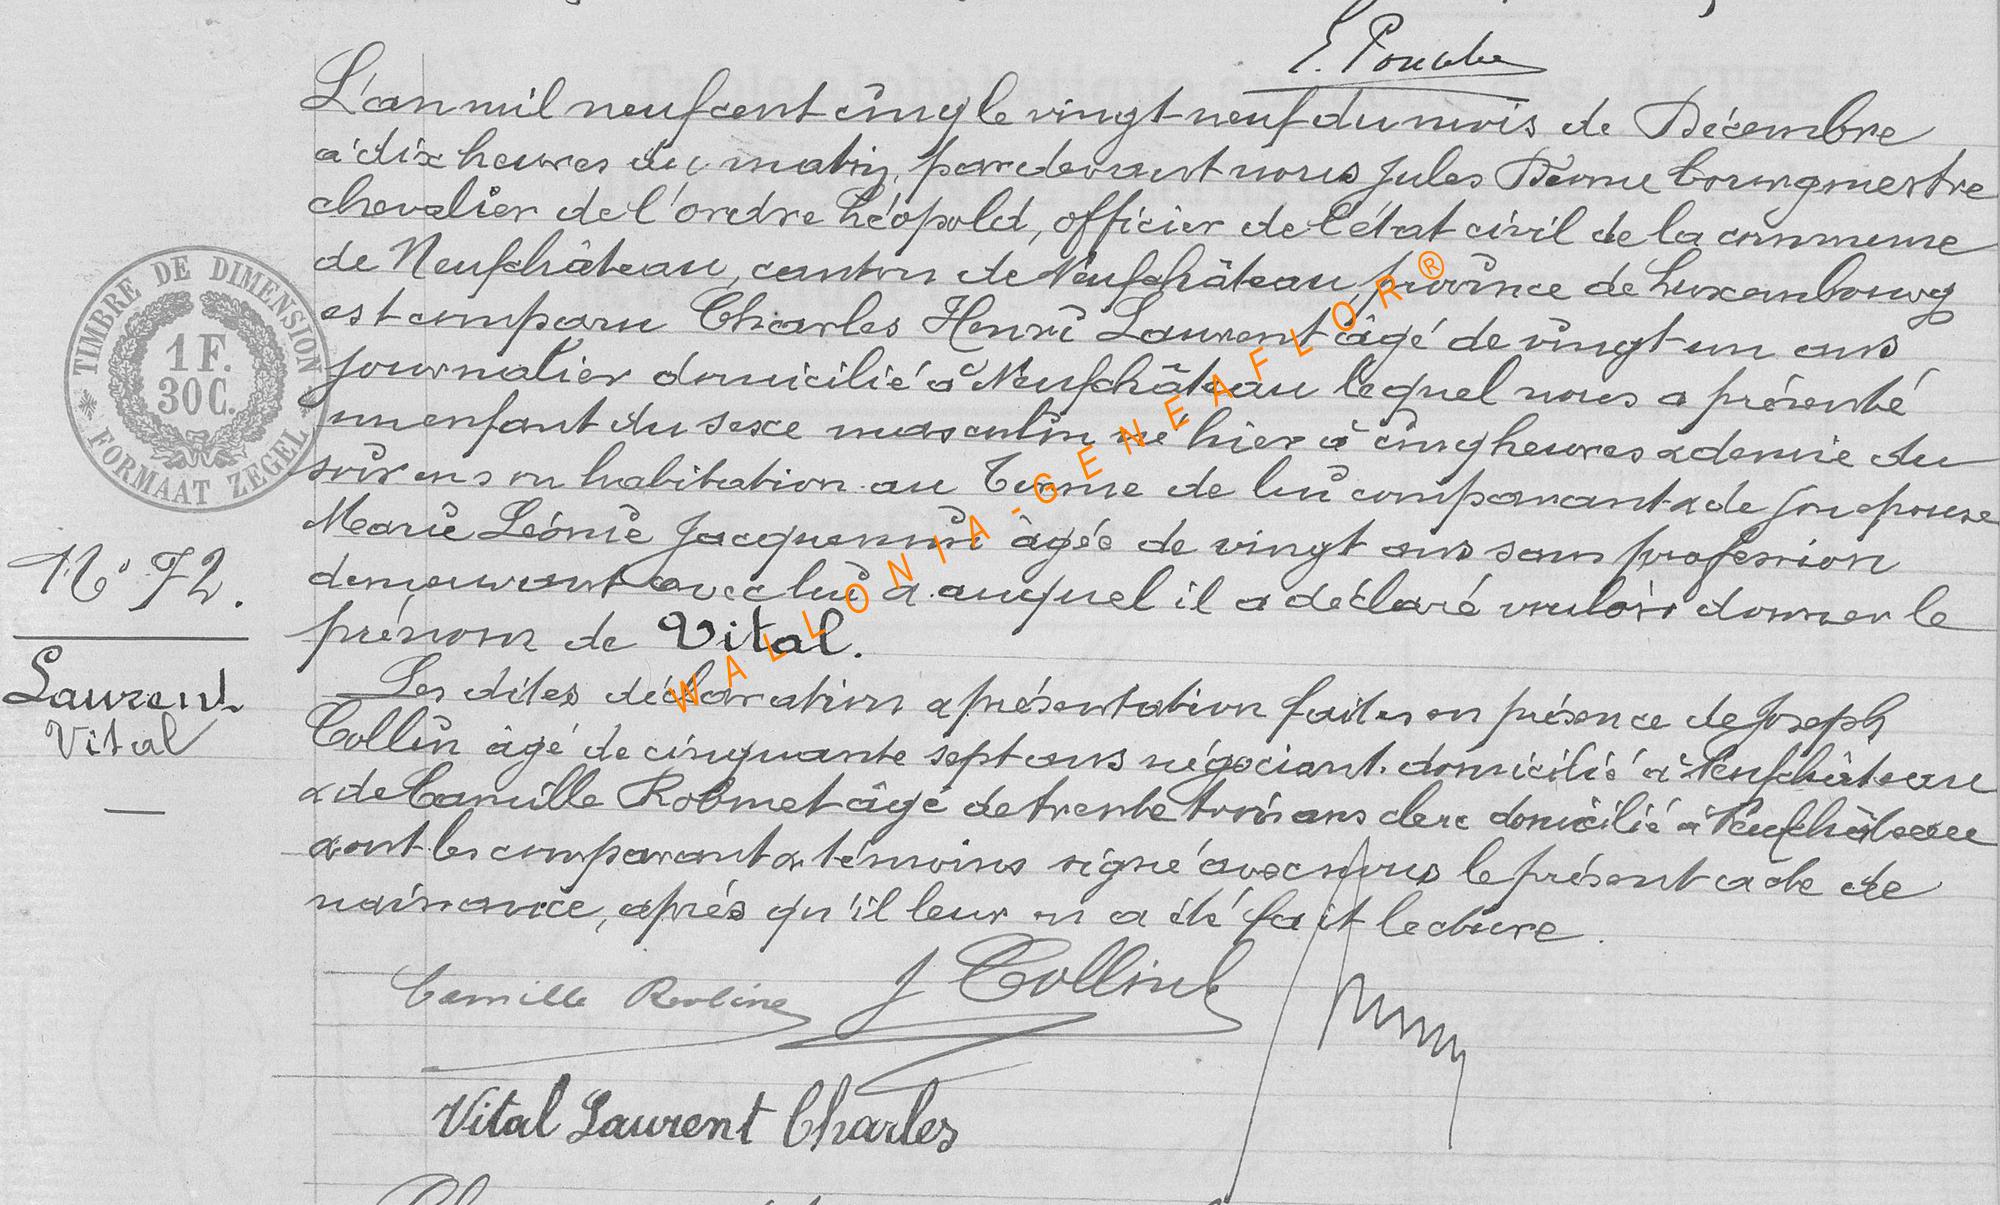 L'an mil neuf cent cinq le vingt neuf du mois de Décembre
à dix heures du matin, par devant nous Jules bourgmestre
chevalier de l'ordre Léopold, officier de l'état civil de la commune
de Neufchâteau, canton de Neufchâteau, province de Luxembourg
est comparu Charles Henri Laurent âgé de vingt-un ans
journalier domicilié à Neufchâteau lequel nous a présenté
un enfant du sexe masculin né hier à cinq heures & demie du
soir en son habitation au Terme de lui comparant & de son épouse
Marie Léonie Jacquemin âgée de vingt ans sans profession
demeurant avec lui & auquel il a déclaré vouloir donner le
prénom de Vital.
Les dites déclaration & présentation faites en présence de Joseph
Collin âgé de cinquante sept ans négociant domicilié à Neufchâteau
& de Camille âgé de trente trois ans clerc domicilié à Neufchâteau
& ont les comparant & témoins signé avec nous le présent acte de
naissance, après qu'il leur en a été fait lecture.
TIMBRE DE DIMENSION
1 F.
30 C.
FORMAAT ZEGEL
N° 72.
Laurent
Vital
Camille J Collin
Vital Laurent Charles
WALLONIA-GENEAFLOR®